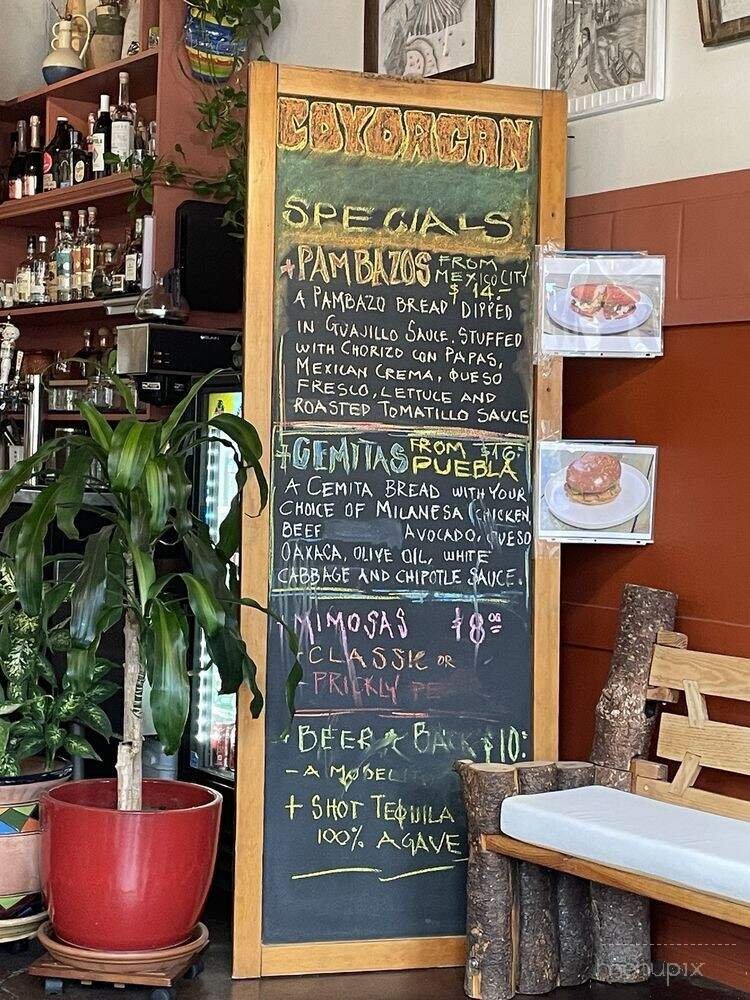 COYOACAN
SPECIALS
+PAMBAZOS FROM
MEXICO CITY
$14.-
A PAMBAZO BREAD DIPPED
IN GUAJILLO SAUCE. STUFFED
WITH CHORIZO CON PAPAS,
MEXICAN CREMA, QUESO
FRESCO, LETTUCE AND
ROASTED TOMATILLO SAUCE
+CEMITAS FROM $16.-
PUEBLA
A CEMITA BREAD WITH YOUR
CHOICE OF MILANESA (CHICKEN,
BEEF AVOCADO, QUESO
OAXACA, OLIVE OIL, WHITE
CABBAGE AND CHIPOTLE SAUCE.
MIMOSAS $8.00
- CLASSIC OR
- PRICKLY
- BEER & BACK $10.-
- A MODELO
+ SHOT TEQUILA
100% AGAVE
menupix